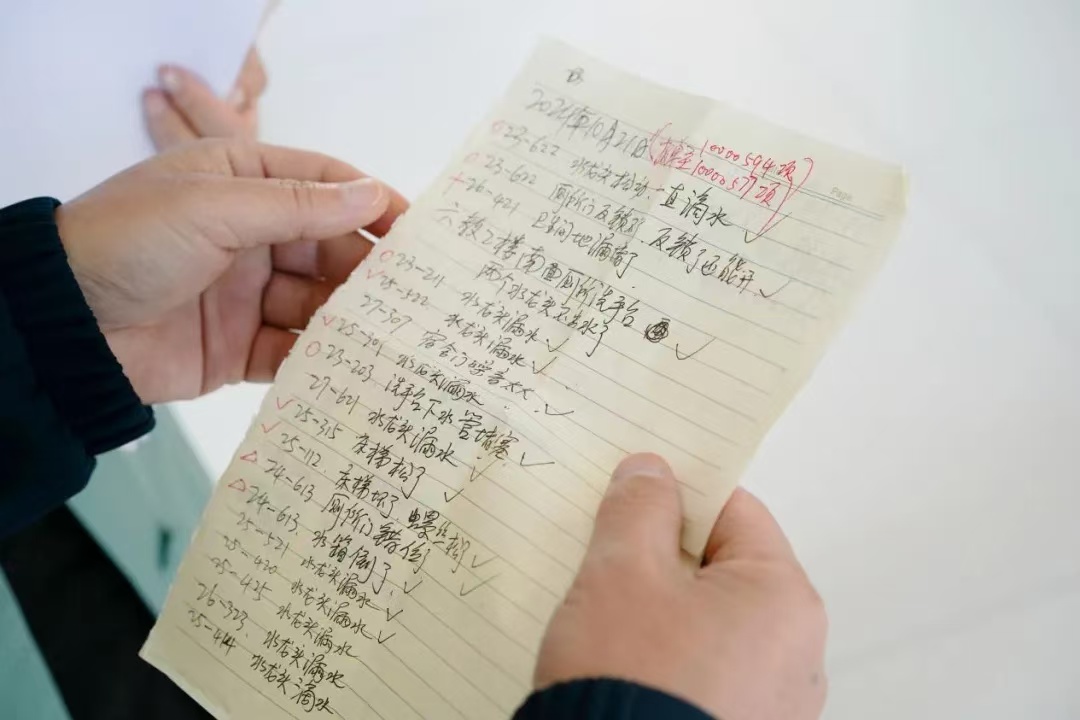 2024年10月21日
10000594项
1000057项
Page
23-622 水龙头松动一直滴水 ✓
23-622 厕所门反锁, 反锁了也能开 ✓
26-421 卫生间地漏堵了.
六楼2楼南面厕所洗手台 ✓
两个水龙头不出水了
23-211 水龙头漏水 ✓
25-522 水龙头漏水 ✓
27-307 宿舍门噪音太大 ✓
25-301 水龙头漏水.
23-203 洗手台下水管堵塞 ✓
27-621 水龙头漏水 ✓
25-315 床梯松了 ✓
25-112. 床梯坏了 螺丝松了 ✓
24-613 厕所门错位 ✓
24-613. 水箱倒了 ✓
25-521 水龙头漏水 ✓
25-420 水龙头漏水 ✓
25-425 水龙头漏水
26-323. 水龙头漏水
25-414 水龙头滴水